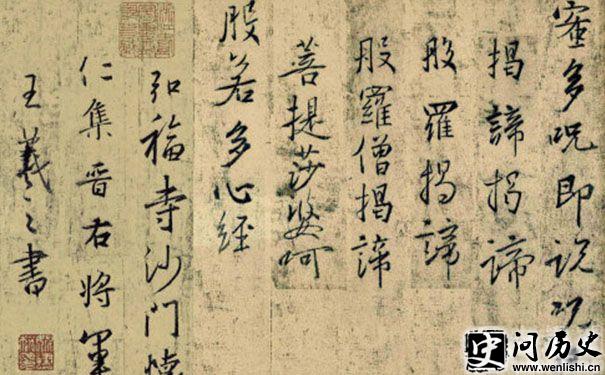 蜜多呪即說呪
揭諦揭諦
般羅揭諦
般羅僧揭諦
菩提莎婆呵
般若多心經
弘福寺沙門懷
仁集晉右將軍
王羲之書
问历史
www.wenlishi.cn